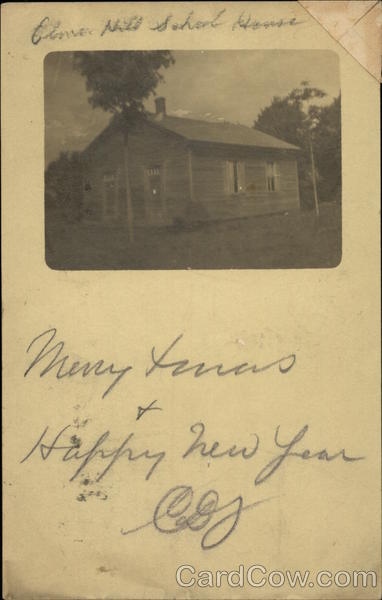 Hill School House
Merry Xmas
+
Happy New Year
CardCow.com